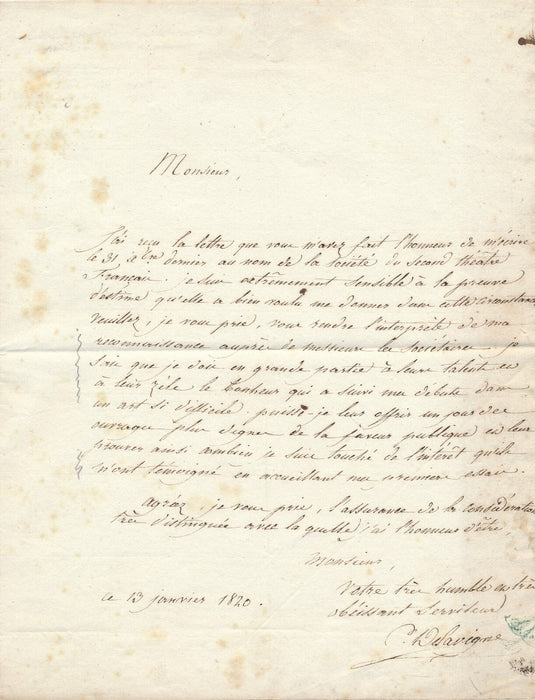 Monsieur,
J'ai reçu la lettre que vous m'avez fait l'honneur de m'écrire
le 31 Xbre dernier au nom de la société du second théâtre
Français. je suis extrêmement sensible à la preuve
d'estime qu'elle a bien voulu me donner dans cette circonstance
veuillez, je vous prie, vous rendre l'interprète de ma
reconnaissance auprès de messieurs les sociétaires. je
sais que je dois en grande partie à leurs talents et
à leur zèle le bonheur qui a suivi mes débuts dans
un art si difficile. puissé-je leur offrir un jour des
ouvrages plus dignes de la faveur publique et leur
prouver ainsi combien je suis touché de l'intérêt qu'ils
m'ont témoigné en accueillant mon premier essai.
agréez, je vous prie, l'assurance de la considération
très distinguée avec la quelle j'ai l'honneur d'être,
Monsieur,
Votre très humble et très
obéissant Serviteur
ce 13 janvier 1820.
C. Delavigne